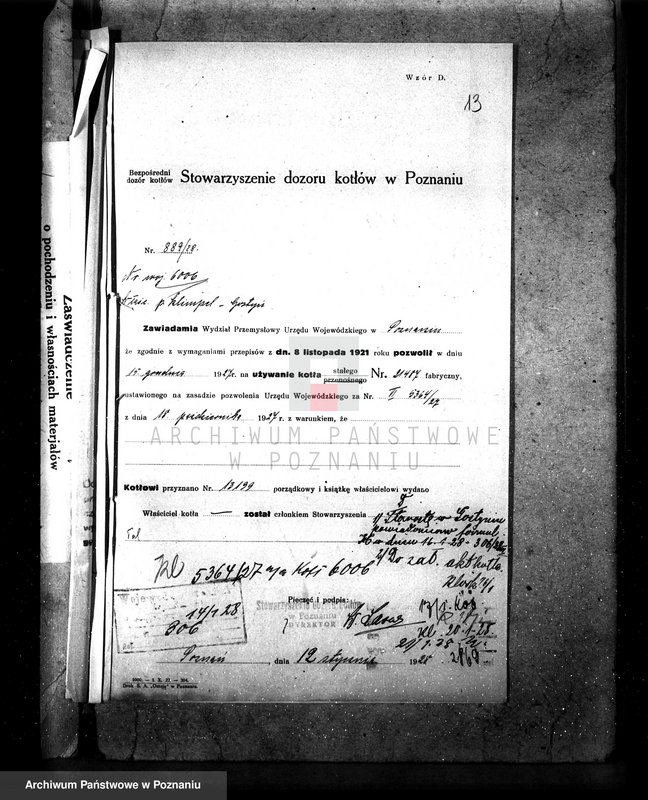 Wzór D.
13
Bezpośredni
dozór kotłów
Stowarzyszenie dozoru kotłów w Poznaniu
Nr. 889/28.
Nr woj 6006
p. Klimpel - Gostyń
Zawiadamia Wydział Przemysłowy Urzędu Wojewódzkiego w Poznaniu
że zgodnie z wymaganiami przepisów z dn. 8 listopada 1921 roku pozwolił w dniu
15 grudnia 1927r. na używanie kotła stałego przenośnego Nr. 21417 fabryczny,
ustawionego na zasadzie pozwolenia Urzędu Wojewódzkiego za Nr. II 5364/27
z dnia 18 października 1927 r. z warunkiem, że
ARCHIWUM PAŃSTWOWE
W POZNANIU
Kotłowi przyznano Nr. 13199 porządkowy i książkę właścicielowi wydano
Właściciel kotła — został członkiem Stowarzyszenia
1/ Starostę w Gostyniu
powiadomiono formul.
w dniu 16-1-28 - 306/28
2/ Do zał. akt kotła
Kl 5364/27 a/a Kotł 6006
Pieczęć i podpis:
Stowarzyszenie Dozoru Kotłów
w Poznaniu
DYREKTOR
14/1 28
306
20-1-28
Poznań, dnia 12 stycznia 1928
Druk S. A. „Ostoja" w Poznaniu.
Zaświadczenie
o pochodzeniu i własnościach materjałów
Archiwum Państwowe w Poznaniu